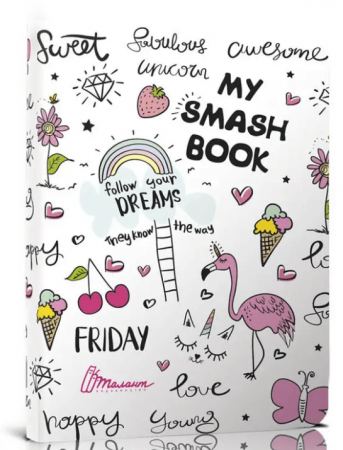 Sweet
fabulous
awesome
unicorn
MY
SMASH
BOOK
follow your
DREAMS
They know the way
happy
lo
FRIDAY
Талант
love
happy
young